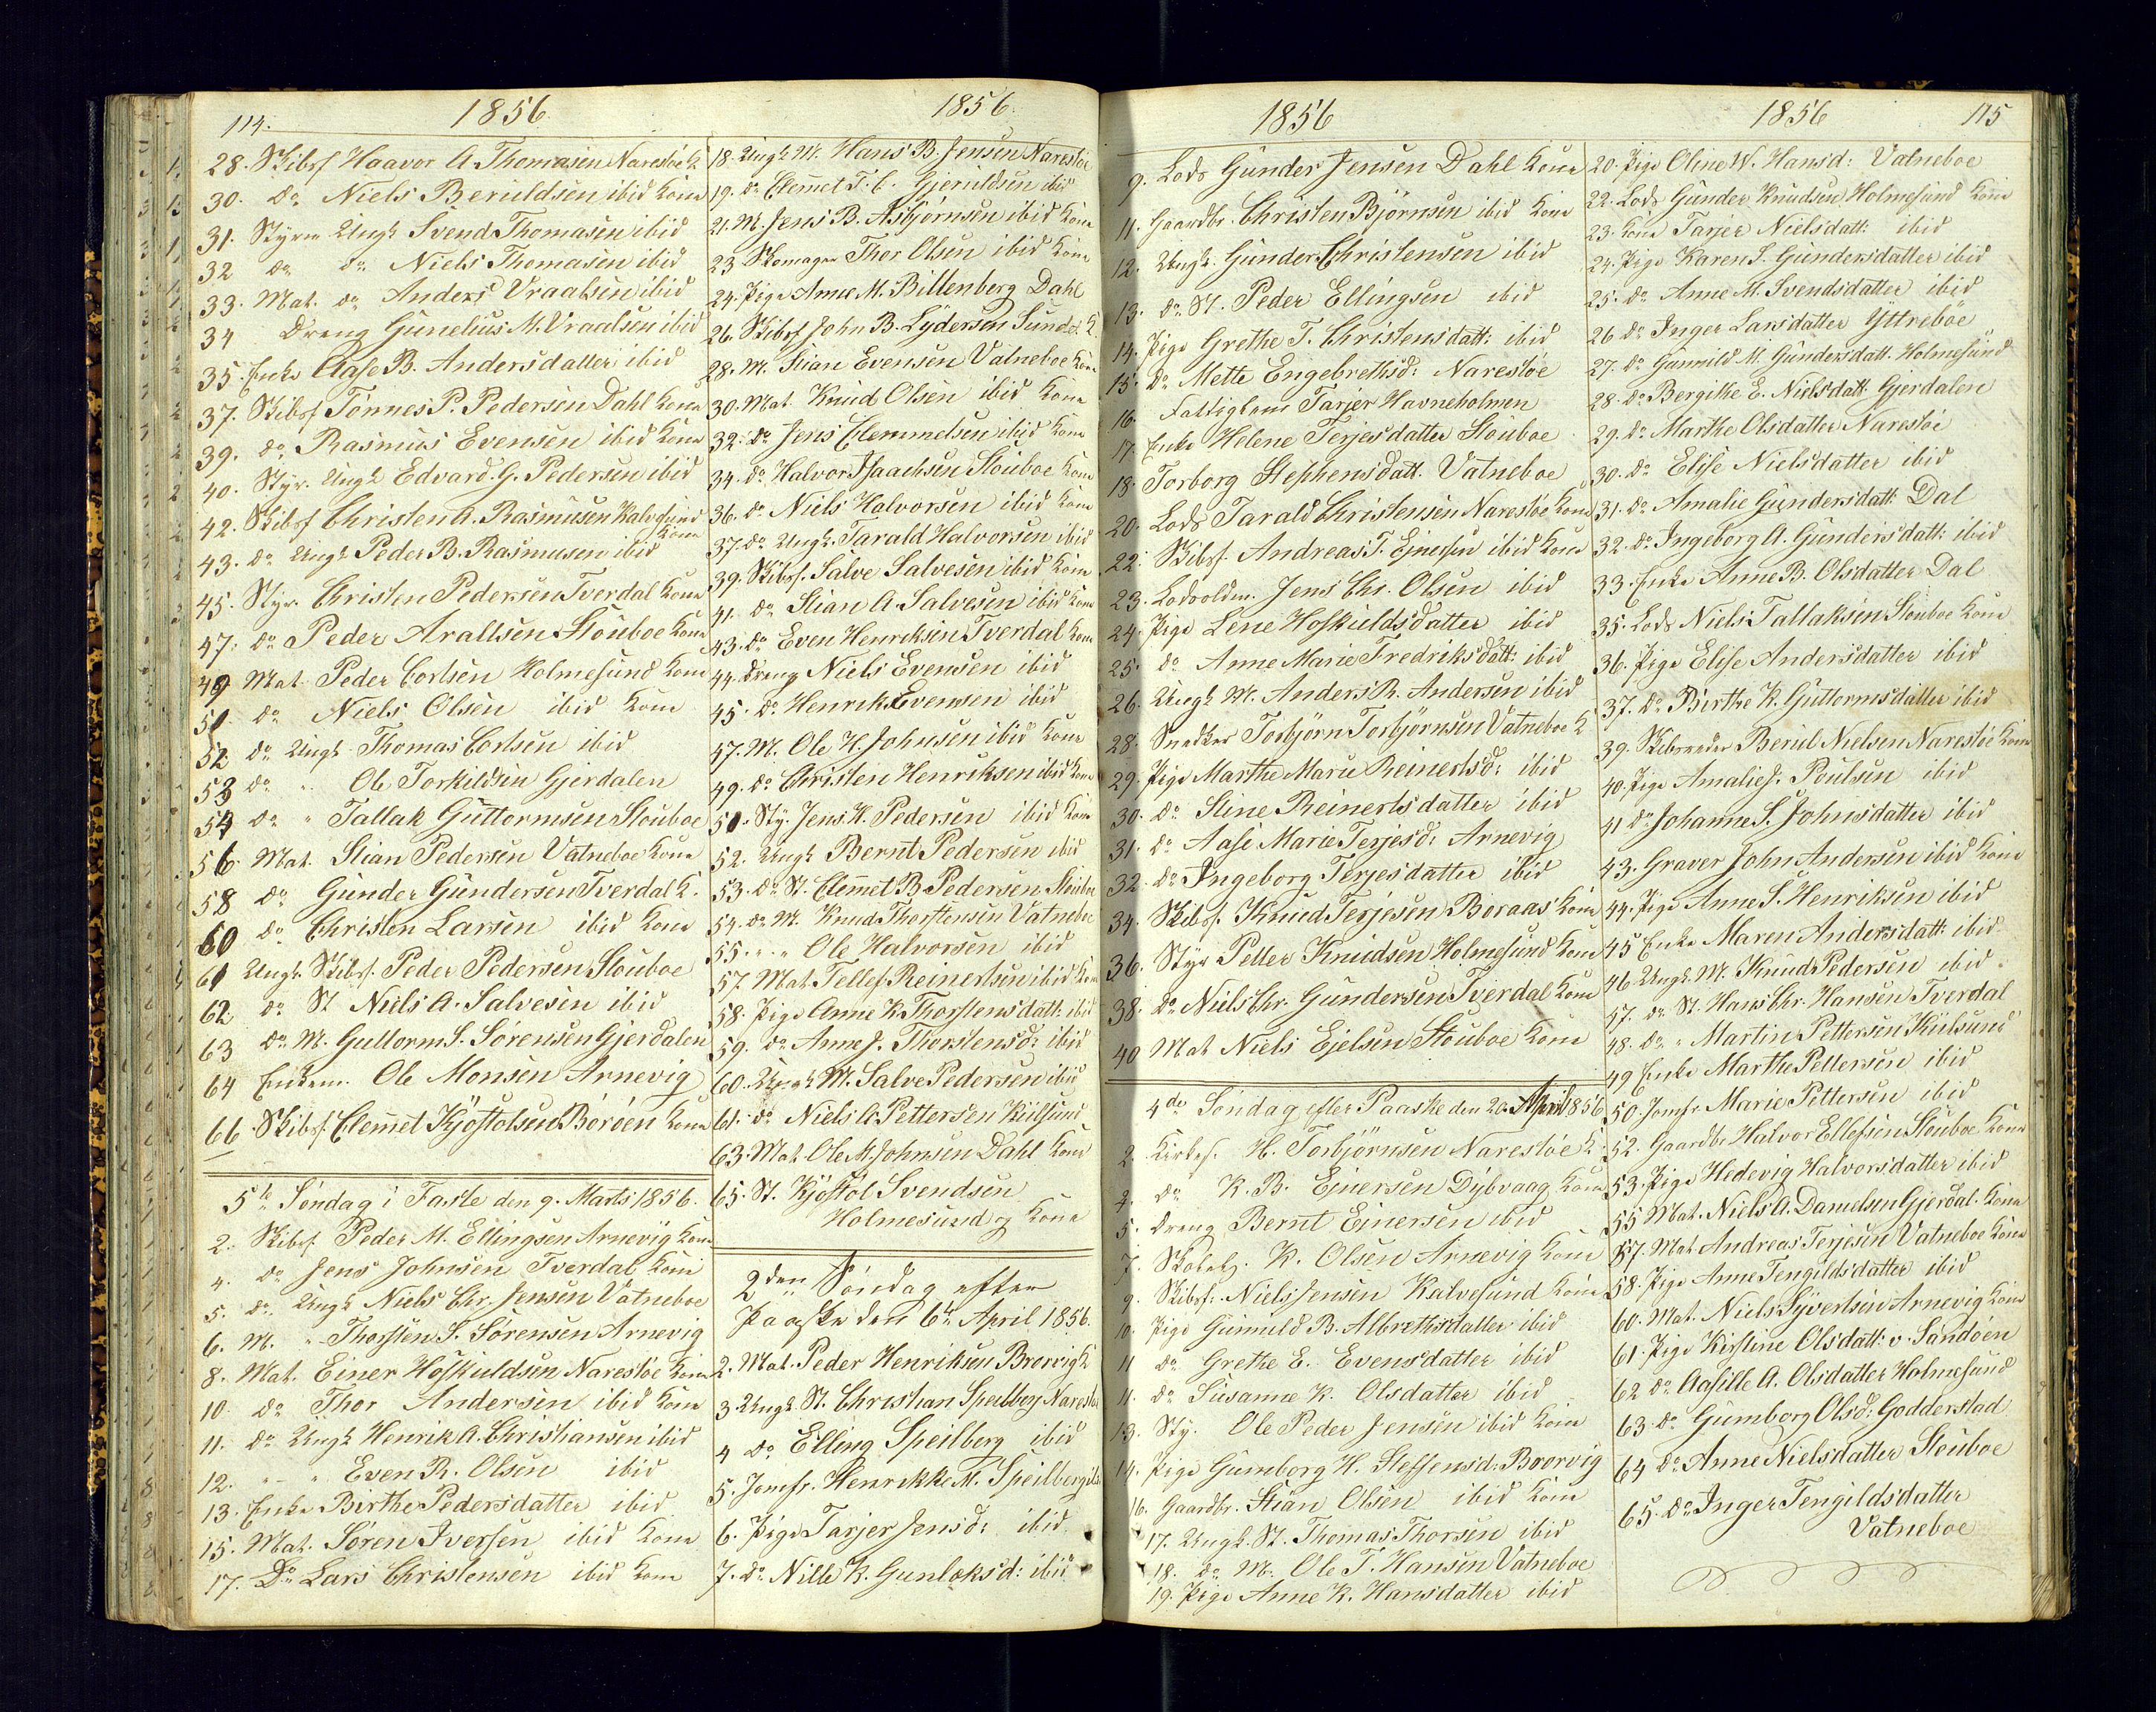 114.
1856
28. Skibsf Haavor A. Thomasen Narestøe K
30. do Niels Beruldsen ibid Kone
31. Styrm Ungk Svend Thomasen ibid
32 do do Niels Thomasen ibid
33. Mat. do Anders Vraalsen ibid
34 Dreng Gunelius M. Vraalsen ibid
35. Enke Aase B. Andersdatter ibid
37. Skibsf Tønnes P. Pedersen Dahl Kone
39. do Rasmus Evensen ibid Kone
40. Styr. Ungk Edvard. G. Pedersen ibid
42. Skibsf Christen A. Rasmusen Kalvesund Kone
43. do Ungk Peder B. Rasmusen ibid
45. Styr. Christen Pedersen Tverdal Kone
47. do Peder Araltsen Stouboe Kone
49 Mat. Peder Corlsen Holmesund Kone
51. do Niels Olsen ibid Kone
52 do Ungk Thomas Corlsen ibid
53 do .. Ole Torkildsen Gjerdalen
54 do " Tallak Guttormsen Stouboe
56. Mat. Stian Pedersen Vatneboe Kone
58 do Gunder Gundersen Tverdal K.
60 do Christen Larsen ibid Kone
61 Ungk Skibsf. Peder Pedersen Stouboe
62. do St Niels A. Salvesen ibid
63 do M. Guttorm S. Sørensen Gjerdalen
64 Enkem. Ole Monsen Arnevig
66. Skibsf. Clemet Kjøstolsen Borøen Kone
5te Søndag i Faste den 9. Marts 1856.
2. Skibsf. Peder M. Ellingsen Arnevig Kone
4. do Jens Johnsen Tverdal Kone
5. do. Ungk Niels Chr. Jensen Vatneboe
6. M. " Thorsten S. Sørensen Arnevig
8. Mat. Einer Høskuldsen Narestøe Kone
10 do Thor Andersen ibid Kone
11. do Ungk Henrik A. Christiansen ibid
12. " - " Even R. Olsen ibid
13. Enke Birthe Pedersdatter ibid
15. Mat. Søren Iversen ibid Kone
17. Do Lars Christensen ibid Kone
1856.
18. Ungk M. Hans B. Jensen Narestøe
19. do Clemet T. C. Gjeruldsen ibid
21. M. Jens B. Asbjørnsen ibid Kone
23 Skomager Thor Olsen ibid Kone
24. Pige Anne M. Billenberg Dahl
26. Skibsf John B. Lydersen Sundet K
28. M. Stian Evensen Vatneboe Kone
30. Mat. Knud Olsen ibid Kone
32. do Jens Clemmetsen ibid Kone
34. do Halvor Isaachsen Stouboe Kone
36. do Niels Halvorsen ibid Kone
37. do Ungk. Tarald Halvorsen ibid
39. Skibsf. Salve Salvesen ibid Kone
41. do Stian A. Salvesen ibid Kone
43. do Even Henriksen Tverdal Kone
44. Dreng Niels Evensen ibid
45. do Henrik Evensen ibid
47. M. Ole H. Johnsen ibid Kone
49. do Christen Henriksen ibid Kone
51. Sty. Jens H. Pedersen ibid Kone
52. Ungk Bernt Pedersen ibid
53. do St. Clemet B. Pedersen Stouboe
54. do M. Knud Thorstensen Vatneboe
55. " " Ole Halvorsen ibid
57. Mat. Tellef Reinertsen ibid Kone
58. Pige Anne K. Thorstensdatt: ibid
59. do Anne J. Thorstensd: ibid
60. Ungk M. Salve Pedersen ibid
61. do Niels A. Pettersen Kiilsund
63. Mat. Ole M. Johnsen Dahl Kone
65. St. Kjøstol Svendsen
Holmesund og Kone
2den Søndag efter
Paaske den 6te April 1856.
2. Mat. Peder Henriksen Brorvig K
3 Ungk St. Christian Speilberg Narestøe
4 do Elling Speilberg ibid
5. Jomfr. Henrikke M. Speilberg ibid
6. Pige Tarjer Jensd: ibid
7. do Nille K. Gunlaksd: ibid
1856
9. Lods Gunder Jensen Dahl Kone
11. Gaardbr. Christen Bjørnsen ibid Kone
12. Ungk. Gunder Christensen ibid
13. do St. Peder Ellingsen ibid
14. Pige Grethe T. Christensdatt: ibid
15. do Mette Engebrethsd: Narestøe
16. Fattiglem Tarjer Havneholmen
17. Enke Helene Terjesdatter Stouboe
18. Torborg Stephensdatt. Vatneboe
20. Lods Tarald Christensen Narestøe Kone
22. Skibsf. Andreas T. Ejnersen ibid Kone
23. Lodsolderm. Jens Chr. Olsen ibid
24. Pige Lene Hoskuldsdatter ibid
25. do Anne Marie Fredriksdatt: ibid
26. Ungk M. Anders R. Andersen ibid
28. Snedker Torbjørn Torbjørnsen Vatneboe K
29. Pige Marthe Marie Reinertsd: ibid
30. do Stine Reinertsdatter ibid
31. do Aase Marie Terjesd: Arnevig
32. do Ingeborg Terjesdatter ibid
34. Skibsf. Knud Terjesen Boraas Kone
36. Styr Petter Knudsen Holmesund Kone
38. do Niels Chr. Gundersen Tverdal Kone
40 Mat Niels Ejelsen Stouboe Kone
4de Søndag efter Paaske den 20. April 1856
2. Kirkes. H. Torbjørnsen Narestøe K.
4. do K. B. Einersen Dybvaag Kone
5. Dreng Bernt Einersen ibid
7. Skolel. K. Olsen Arnevig Kone
9. Skibsf. Niels Jensen Kalvesund Kone
10. Pige Gunuld B. Albrethsdatter ibid
11 do Grethe E. Evensdatter ibid
11. do Susanne K. Olsdatter ibid
13. Sty. Ole Peder Jensen ibid Kone
14. Pige Gumborg H. Steffensd: Broorvig
16. Gaardbr. Stian Olsen ibid Kone
17. Ungk. St. Thomas Thorsen ibid
18. do M. Ole T. Hansen Vatneboe
19. Pige Anne K. Hansdatter ibid
1856
115
20. Pige Oline W. Hansd: Vatneboe
22. Lods Gunder Knudsen Holmesund Kone
23. Kone Tarjer Nielsdatt: ibid
24. Pige Karen S. Gundersdatter ibid
25. do Anne M. Svendsdatter ibid
26 do Inger Larsdatter Yttrebøe
27. do Gunnild M. Gundersdatt. Holmesund
28. do Bergitte E. Nielsdatt: Gjerdalen
29. do Marthe Olsdatter Narestøe
30. do Elise Nielsdatter ibid
31. do Amalie Gundersdatt: Dal
32. do Ingeborg A. Gundersdatt: ibid
33. Enke Anne B. Olsdatter Dal
35. Lods Niels Tallaksen Stouboe Kone
36. Pige Elise Andersdatter ibid
37. do Birthe K. Guttormsdatter ibid
39. Skibsreder Beruel Nielsen Narestøe Kone
40. Pige Amalie J. Poulsen ibid
41 do Johanne S. Johnsdatter ibid
43. Graver John Andersen ibid Kone
44. Pige Anne S. Henriksen ibid
45 Enke Maren Andersdatt: ibid
46 Ungk. M. Knud Pedersen ibid
47. do St. Hans Chr. Hansen Tverdal
48. do " Martin Pettersen Kiilsund
49 Enke Marthe Pettersen ibid
50. Jomfr Marie Pettersen ibid
52. Gaardbr Halvor Ellefsen Stouboe Kone
53. Pige Hedevig Halvorsdatter ibid
55 Mat. Niels A. Danielsen Gjerdal. Kone
57. Mat Andreas Terjesen Vatneboe Kone
58. Pige Anne Tengildsdatter ibid
60. Mat. Niels Syvertsen Arnevig Kone
61. Pige Kirstine Olsdatt: v. Sandøen
62 do Aasille A. Olsdatter Holmesund
63. do Gumborg Olsd: Godderstad
64 do Anne Nielsdatter Stouboe
65. do Inger Tengildsdatter
Vatneboe